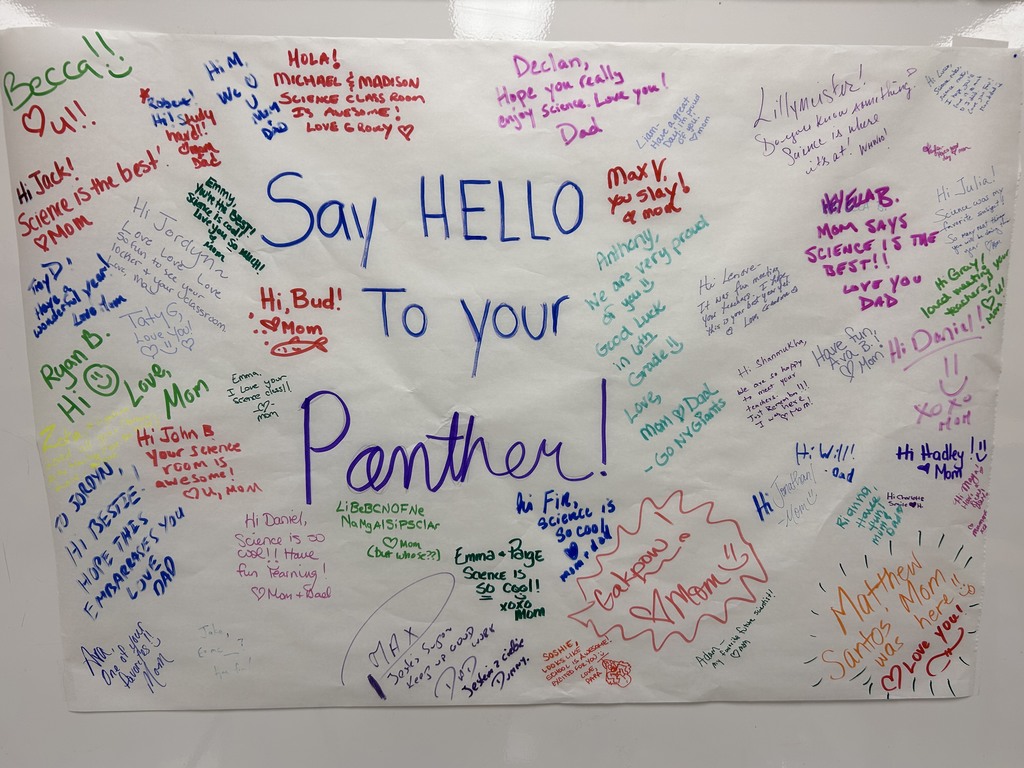 Say HELLO
To your
Panther!
Becca!!
♡ u!!
Robert!
Hi! Study
hard!
♡ Mom
Dad
Hi M,
We ♡ U
Mum
Dad
HOLA!
MICHAEL & MADISON
SCIENCE CLASSROOM
IS AWESOME!
LOVE GROWY ♡
Declan,
Hope you really
enjoy science. Love you!
Dad
Liam-
Have a great
day! So proud
of you!!
♡ mom
Lillymuster!
Do you know something?
Science is where
it's at! WHWHO!
Hi Jack!
Science is the best!
♡ Mom
Hi Jordynn
Love Love Love
So fun to see your
teacher + your classroom
Love Mom
Emmy,
You're the Best!
Science is cool
Love you so much!!
Mom
Max V.
you slay!
♡ mom
HEY ELLA B.
MOM SAYS
SCIENCE IS THE
BEST!!
LOVE YOU
DAD
Hi Julia!
Science was my
favorite subject!
♡ Mom
Troy D!
Have a
wonderful year!
Love Mom
Taty G,
Love you!
Hi, Bud!
♡ Mom
Anthony,
We are very proud
of you!!
Good luck
in 6th
Grade!!
Love,
Mom ♡ Dad
- Go NY Giants
Hi Lenore-
It was fun meeting
your teachers. I hope
this is your best year yet!
Hi Gray!
loved meeting your
teachers!
♡ u!
Mom
Ryan B.
Hi
Love,
Mom
Emma,
I love your
science class!!
♡-
mom
Hi Shanmukha,
We are so happy
to meet your
teachers!!!
I was here!
♡ Mom!
Have fun,
Ava B.!
♡ Mom
Hi Daniel!
XOXO
MOM
Hi John B
Your science
room is
awesome!
♡ U, Mom
TO JORDYN,
HI BESTIE!
HOPE THIS
EMBARRASES YOU
LOVE
DAD
Hi Daniel,
Science is so
cool!! Have
fun learning!
♡ Mom + Dad
LiBeBCNOFNe
NaMgAlSiPSClAr
♡ Mom
(but whose??)
Emma + Paige
Science is
so cool!!
xoxo
Mom
Hi Fir,
science is
so cool
♡
mom, dad
Gakpow
♡ Mom
Hi Will!
- Dad
Hi Jonathan!
- Mom
Hi Hadley!
♡ Mom
Hi Charlotte
Science ♡ it
Riginn,
Have
fun!
Mom &
Dad
Ava
One of your
favorites!!
Mom
John,
MAX
Keep up good work
DAD
SOPHIE!
LOOKS LIKE
SCHOOL IS AWESOME!
EXCITED FOR YOU
LOVE,
PAPA
Adam -
My favorite future scientist!
♡ Mom
Matthew
Santos' Mom
was here!!
♡ Love you!